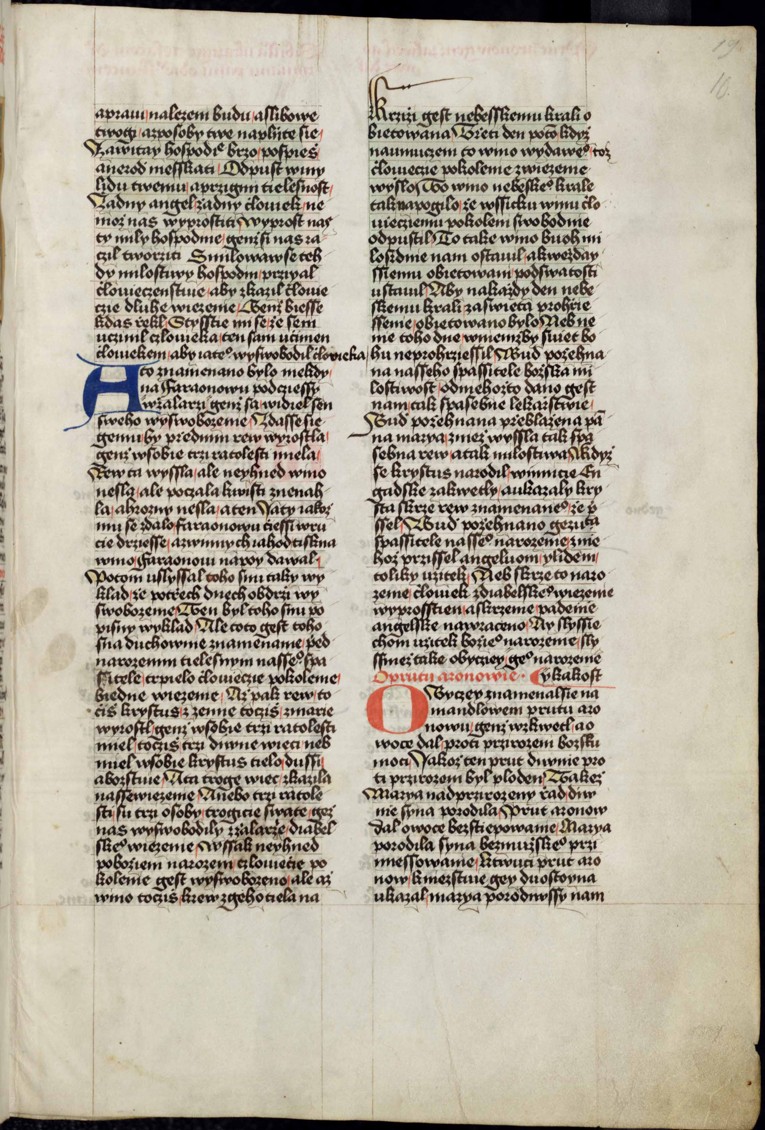 apraui nalezem budu aslibowe
twogi azposoby twe naplijte sie
Zawitay hospodie brzo pospies
anerod messkati Odpust winy
lidu twemu aprzigmi tielesnost
Zadny angel zadny člowiek ne
moz nas wyprostiti Wyprost nas
ty mily hospodine genz si nas ra
czil tworziti Smilowaw se teh
dy milostiwy hospodin przigal
člowieczenstwie aby zkazil člowie
czie dluhe wiezenie Genz biesse
kdas řekl Styssstie mi se ze sem
uczinil człowieka ten sam učinien
člowiekem aby iateho wyswobodil člowieka
A to znamenano bylo niekdy
na Faraonowu podcziessy
wžalarzi genž sa widiel sen
sweho wyswobozenie Zdasse sie
gemu by przednim rew wyrostla
genž wsobie trzi ratolesti miela
Rew ta wyssla ale neyhned wino
nesla ale poczala kwisti znenah
la ahrozny nesla aten Jaty iakoz
mu se zdalo Faraonowu čiessi wru
cie drziesse azwinnych iahod tiskna
wino Faraonowi napoy dawal
Potom uslyssal toho snu taky wy
klad ze potřech dnech obdrzi wy
swobozenie Ten byl toho snu po
pisny wyklad Ale toto gest toho
sna duchownie znamenanie před
narozenim tielesnym nasseho spa
sitele trpielo člowieczie pokolenie
biedne wiezenie Až pak rew to
čiš krystus zzemie točziš zmarie
wyrostl genž wsobie trzi ratolesti
miel točziš trzi diwne wieci neb
miel wsobie krystus tielo dussi
aborstwie A ta troge wiec zkazila
nasse wiezenie Anebo trzi ratole
sti su trzi osoby trogicie swate gež
nas wyswobodily zžalarze diabel
skeho wiezenie Wssak neyhned
pobožiem narozeni człowiecie po
kolenie gest wyswobozeno ale až
wino točziš krew zgeho tiela na
Krzizi gest nebesskemu krali o
bietowana Třeti den poto kdyz
naumuczeni to wino wydaweho toz
člowiečie pokolenie zwiezenie
wyslo To wino nebeskeho krale
tak napogilo ze wssicku winu člo
wieciemu pokoleni swobodnie
odpustil To take wino buoh mi
losrdnie nam ostawil akwezday
ssiemu obietowani podswatosti
ustawil Aby nakazdy den nebe
skemu krali zaswieta prohrze
ssenie obietowano bylo Neb ne
nie toho dne wniemzby swiet bo
hu neprohrziessil Bud pozehna
na nasseho spassitele božska mi
lostiwost odniehozto dano gest
nam tak spasebne lekarstwie
Bud pozehnana přeblazena pā
na marya zniez wyssla tak spa
sebna rew atak milostiwa Kdyz
se krystus narodil winnicie En
gadske zakwetly aukazaly kry
sta skrze rew znamenaneho ze př
ssel Bud pozehnano gezu
spassitele nasseho narozenie znie
hoz przissel angeluom ylidem
toliky uzitek Neb skrze to naro
zenie člowiek zdiabelskeho wiezenie
wyprosstien askrzenie padenie
angelske nawraceno Ny slyssie
chom uzitek božieho narozenie sly
ssmež take obyczey geho narozenie
O prutu aronowie Cykakost
Obyczey znamenal sie na
mandlowem prutu aro
nowu genz wzkwetl ao
woce dal proti przirozeni božsku
moci Jakoz ten prut diwnie pro
ti przirozeni byl ploden Takez
Marya nad przirozeny řad diw
nie syna porodila Prut aronow
dal owoce bezstiepowanie Marya
porodila syna bezmuzskeho przi
miessowanie Ktwuci prut aro
now kniezstwie gey duostoyna
ukazal marya porodiwssy nam